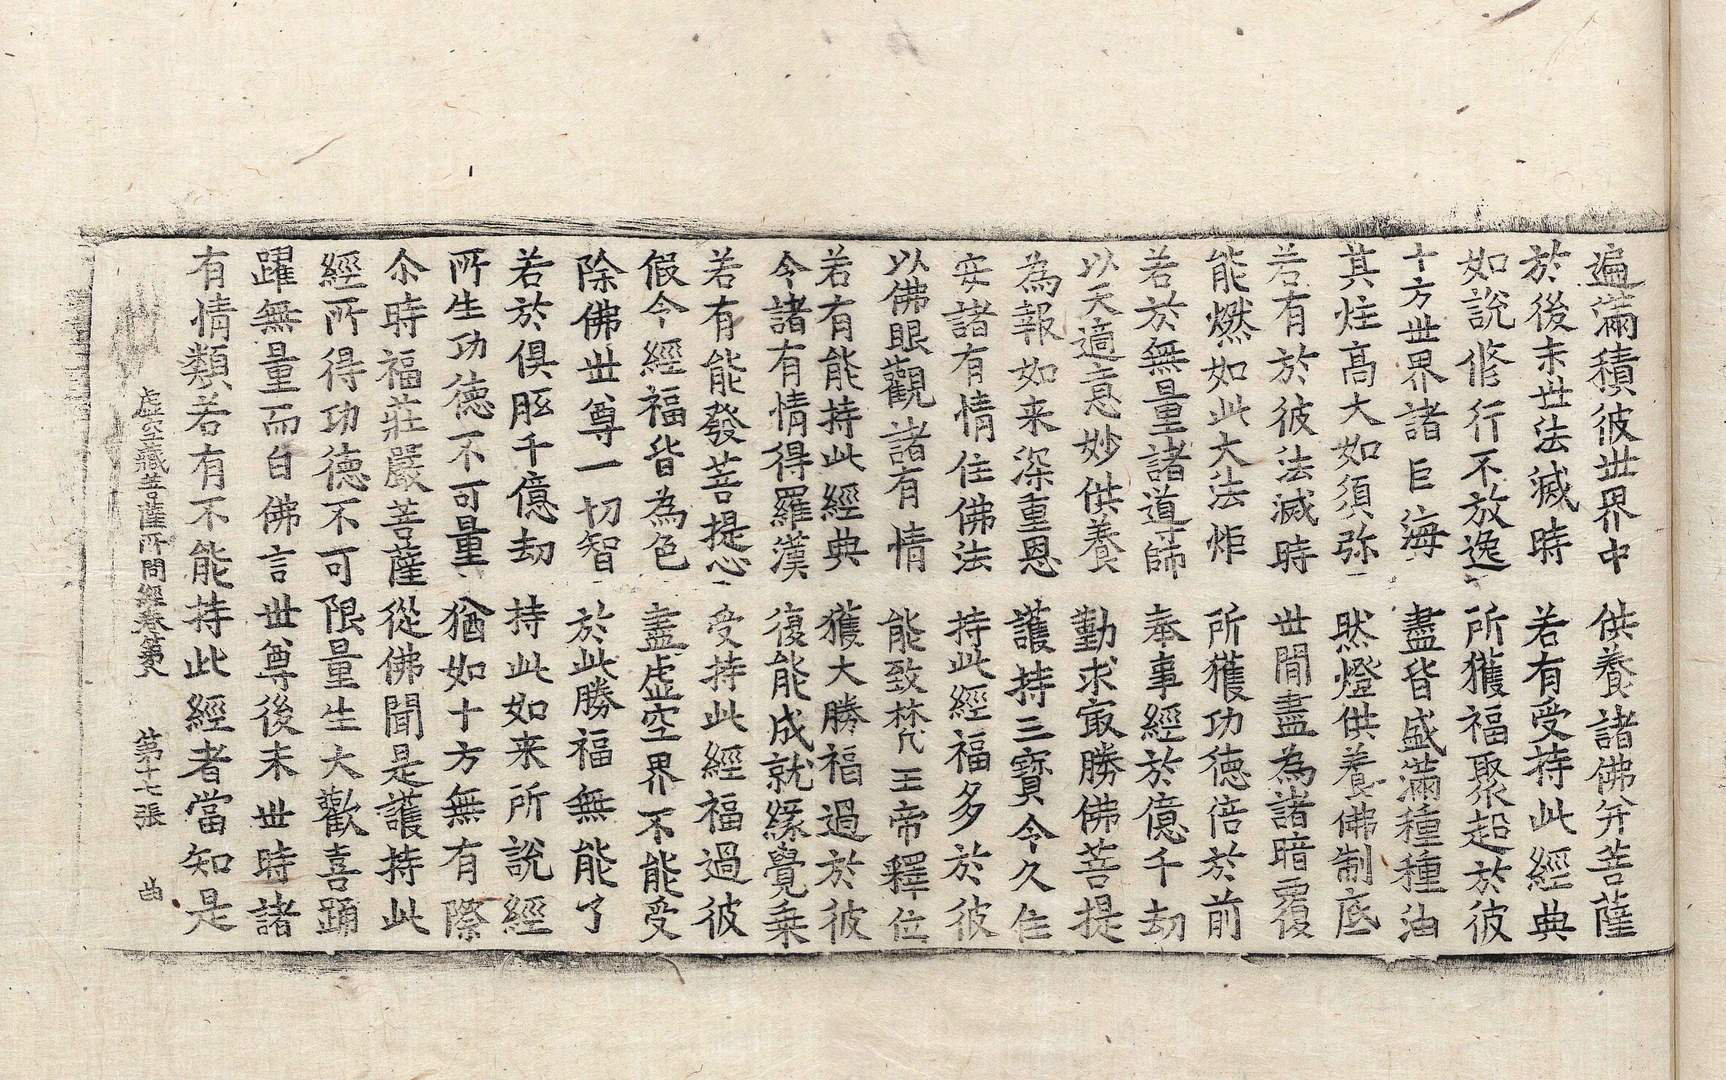 遍滿積彼世界中　供養諸佛幷菩薩
於後末世法滅時　若有受持此經典
如說修行不放逸　所獲福聚超於彼
十方世界諸巨海　盡皆盛滿種種油
其炷高大如須弥　然燈供養佛制底
若有於彼法滅時　世間盡為諸暗覆
能燃如此大法炬　所獲功德倍於前
若於無量諸導師　奉事經於億千劫
以天適意妙供養　勤求㝡勝佛菩提
為報如来深重恩　護持三寶令久住
安諸有情住佛法　持此經福多於彼
以佛眼觀諸有情　能致梵王帝釋位
若有能持此經典　獲大勝福過於彼
令諸有情得羅漢　復能成就緣覺乗
若有能發菩提心　受持此經福過彼
假令經福皆為色　盡虛空界不能受
除佛世尊一切智　於此勝福無能了
若於俱胝千億劫　持此如来所說經
所生功德不可量　猶如十方無有際
尒時福莊嚴菩薩從佛聞是護持此
經所得功德不可限量生大歡喜踊
躍無量而白佛言世尊後末世時諸
有情類若有不能持此經者當知是
虛空藏菩薩所問經卷第　第十七張